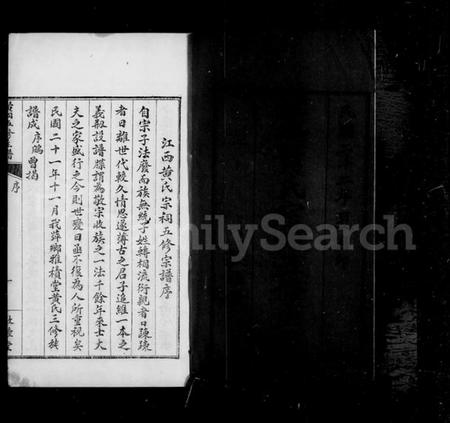 江西黄氏宗祠五修宗譜序
自宗子法廢而族無統子姓轉相流衍親者日疎疎
者日離世代較久情思遂薄古之君子追維一本之
義剏設譜牒謂為敬宗收族之一法千餘年來士大
夫之家盛行之今則世變日亟不復為人所重視矣
民國二十一年十一月我萍鄉雅積堂黄氏三修族
譜成序鵬曾揭
五修宗譜
序
一
敦重堂
FamilySearch